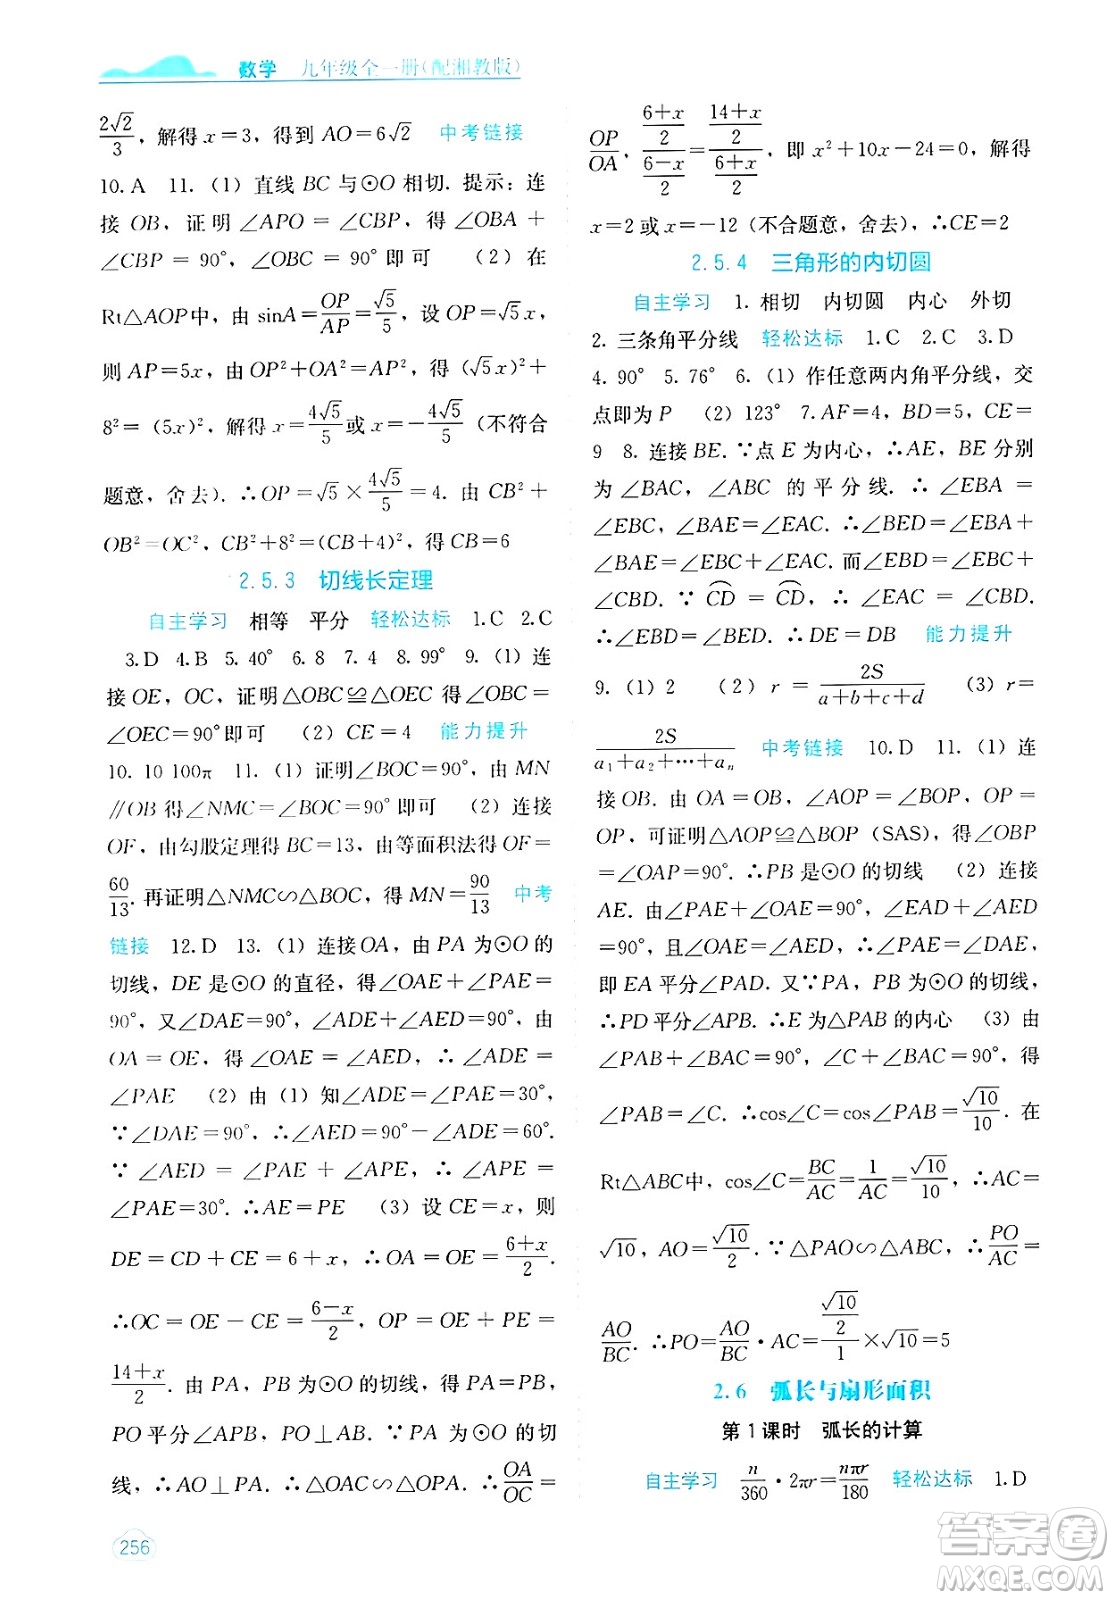 数学 九年级全一册(配湘教版)
2√2/3,解得 x=3,得到 AO=6√2 中考链接
10.A 11.(1) 直线 BC 与⊙O 相切. 提示:连
接 OB,证明∠APO=∠CBP,得∠OBA+
∠CBP=90°,∠OBC=90°即可 (2) 在
Rt△AOP中,由 sinA=OP/AP=√5/5,设 OP=√5x,
则 AP=5x,由 OP²+OA²=AP²,得(√5x)²+
8²=(5x)²,解得 x=4√5/5或 x=-4√5/5(不符合
题意,舍去). ∴OP=√5×4√5/5=4. 由 CB²+
OB²=OC²,CB²+8²=(CB+4)²,得 CB=6
2.5.3 切线长定理
自主学习 相等 平分 轻松达标 1.C 2.C
3.D 4.B 5.40° 6.8 7.4 8.99° 9.(1) 连
接 OE,OC,证明△OBC≌△OEC 得∠OBC=
∠OEC=90°即可 (2) CE=4 能力提升
10. 10 100π 11.(1) 证明∠BOC=90°,由 MN
∥OB 得∠NMC=∠BOC=90°即可 (2) 连接
OF,由勾股定理得 BC=13,由等面积法得 OF=
60/13. 再证明△NMC∽△BOC,得 MN=90/13 中考
链接 12.D 13.(1) 连接OA,由 PA 为⊙O 的
切线,DE 是⊙O 的直径,得∠OAE+∠PAE=
90°,又∠DAE=90°,得∠AED+∠ADE=90°,由
OA=OE,得∠OAE=∠AED,∴∠ADE=
∠PAE (2) 由(1)知∠ADE=∠PAE=30°,
∵∠DAE=90°,∴∠AED=90°-∠ADE=60°.
∵∠AED=∠PAE+∠APE,∴∠APE=
∠PAE=30°. ∴AE=PE (3) 设 CE=x,则
DE=CD+CE=6+x,∴OA=OE=6+x/2.
∴OC=OE-CE=6-x/2,OP=OE+PE=
14+x/2. 由 PA,PB 为⊙O 的切线,得 PA=PB,
PO 平分∠APB,PO⊥AB. ∵PA 为⊙O 的切
线,∴AO⊥PA. ∴△OAC∽△OPA. ∴OA/OC=
256
OP/OA,(6+x)/2/(6-x)/2=(14+x)/2/(6+x)/2,即 x²+10x-24=0,解得
x=2 或 x=-12(不合题意,舍去),∴CE=2
2.5.4 三角形的内切圆
自主学习 1. 相切 内切圆 内心 外切
2. 三条角平分线 轻松达标 1.C 2.C 3.D
4.90° 5.76° 6.(1) 作任意两内角平分线,交
点即为 P (2) 123° 7.AF=4,BD=5,CE=
9 8. 连接 BE. ∵点 E 为内心,∴AE,BE 分别
为∠BAC,∠ABC 的平分线. ∴∠EBA=
∠EBC,∠BAE=∠EAC. ∴∠BED=∠EBA+
∠BAE=∠EBC+∠EAC. 而∠EBD=∠EBC+
∠CBD. ∵⌒CD=⌒CD,∴∠EAC=∠CBD.
∴∠EBD=∠BED. ∴DE=DB 能力提升
9.(1) 2 (2) r=2S/a+b+c+d (3) r=
2S/a₁+a₂+…+aₙ 中考链接 10.D 11.(1) 连
接 OB. 由 OA=OB,∠AOP=∠BOP,OP=
OP,可证明△AOP≌△BOP (SAS),得∠OBP
=∠OAP=90°,∴PB 是⊙O 的切线 (2) 连接
AE. 由∠PAE+∠OAE=∠EAD+∠AED
=90°,且∠OAE=∠AED,∴∠PAE=∠DAE,
即 EA 平分∠PAD. 又∵PA,PB 为⊙O 的切线,
∴PD平分∠APB. ∴E 为△PAB 的内心 (3) 由
∠PAB+∠BAC=90°,∠C+∠BAC=90°,得
∠PAB=∠C. ∴cos∠C=cos∠PAB=√10/10. 在
Rt△ABC中,cos∠C=BC/AC=1/AC=√10/10,∴AC=
√10,AO=√10/2. ∵△PAO∽△ABC,∴PO/AC=
AO/BC. ∴PO=AO/BC·AC=√10/2/1×√10=5
2.6 弧长与扇形面积
第1课时 弧长的计算
自主学习 n/360·2πr=nπr/180 轻松达标 1.D
答案圈
MXQE.COM